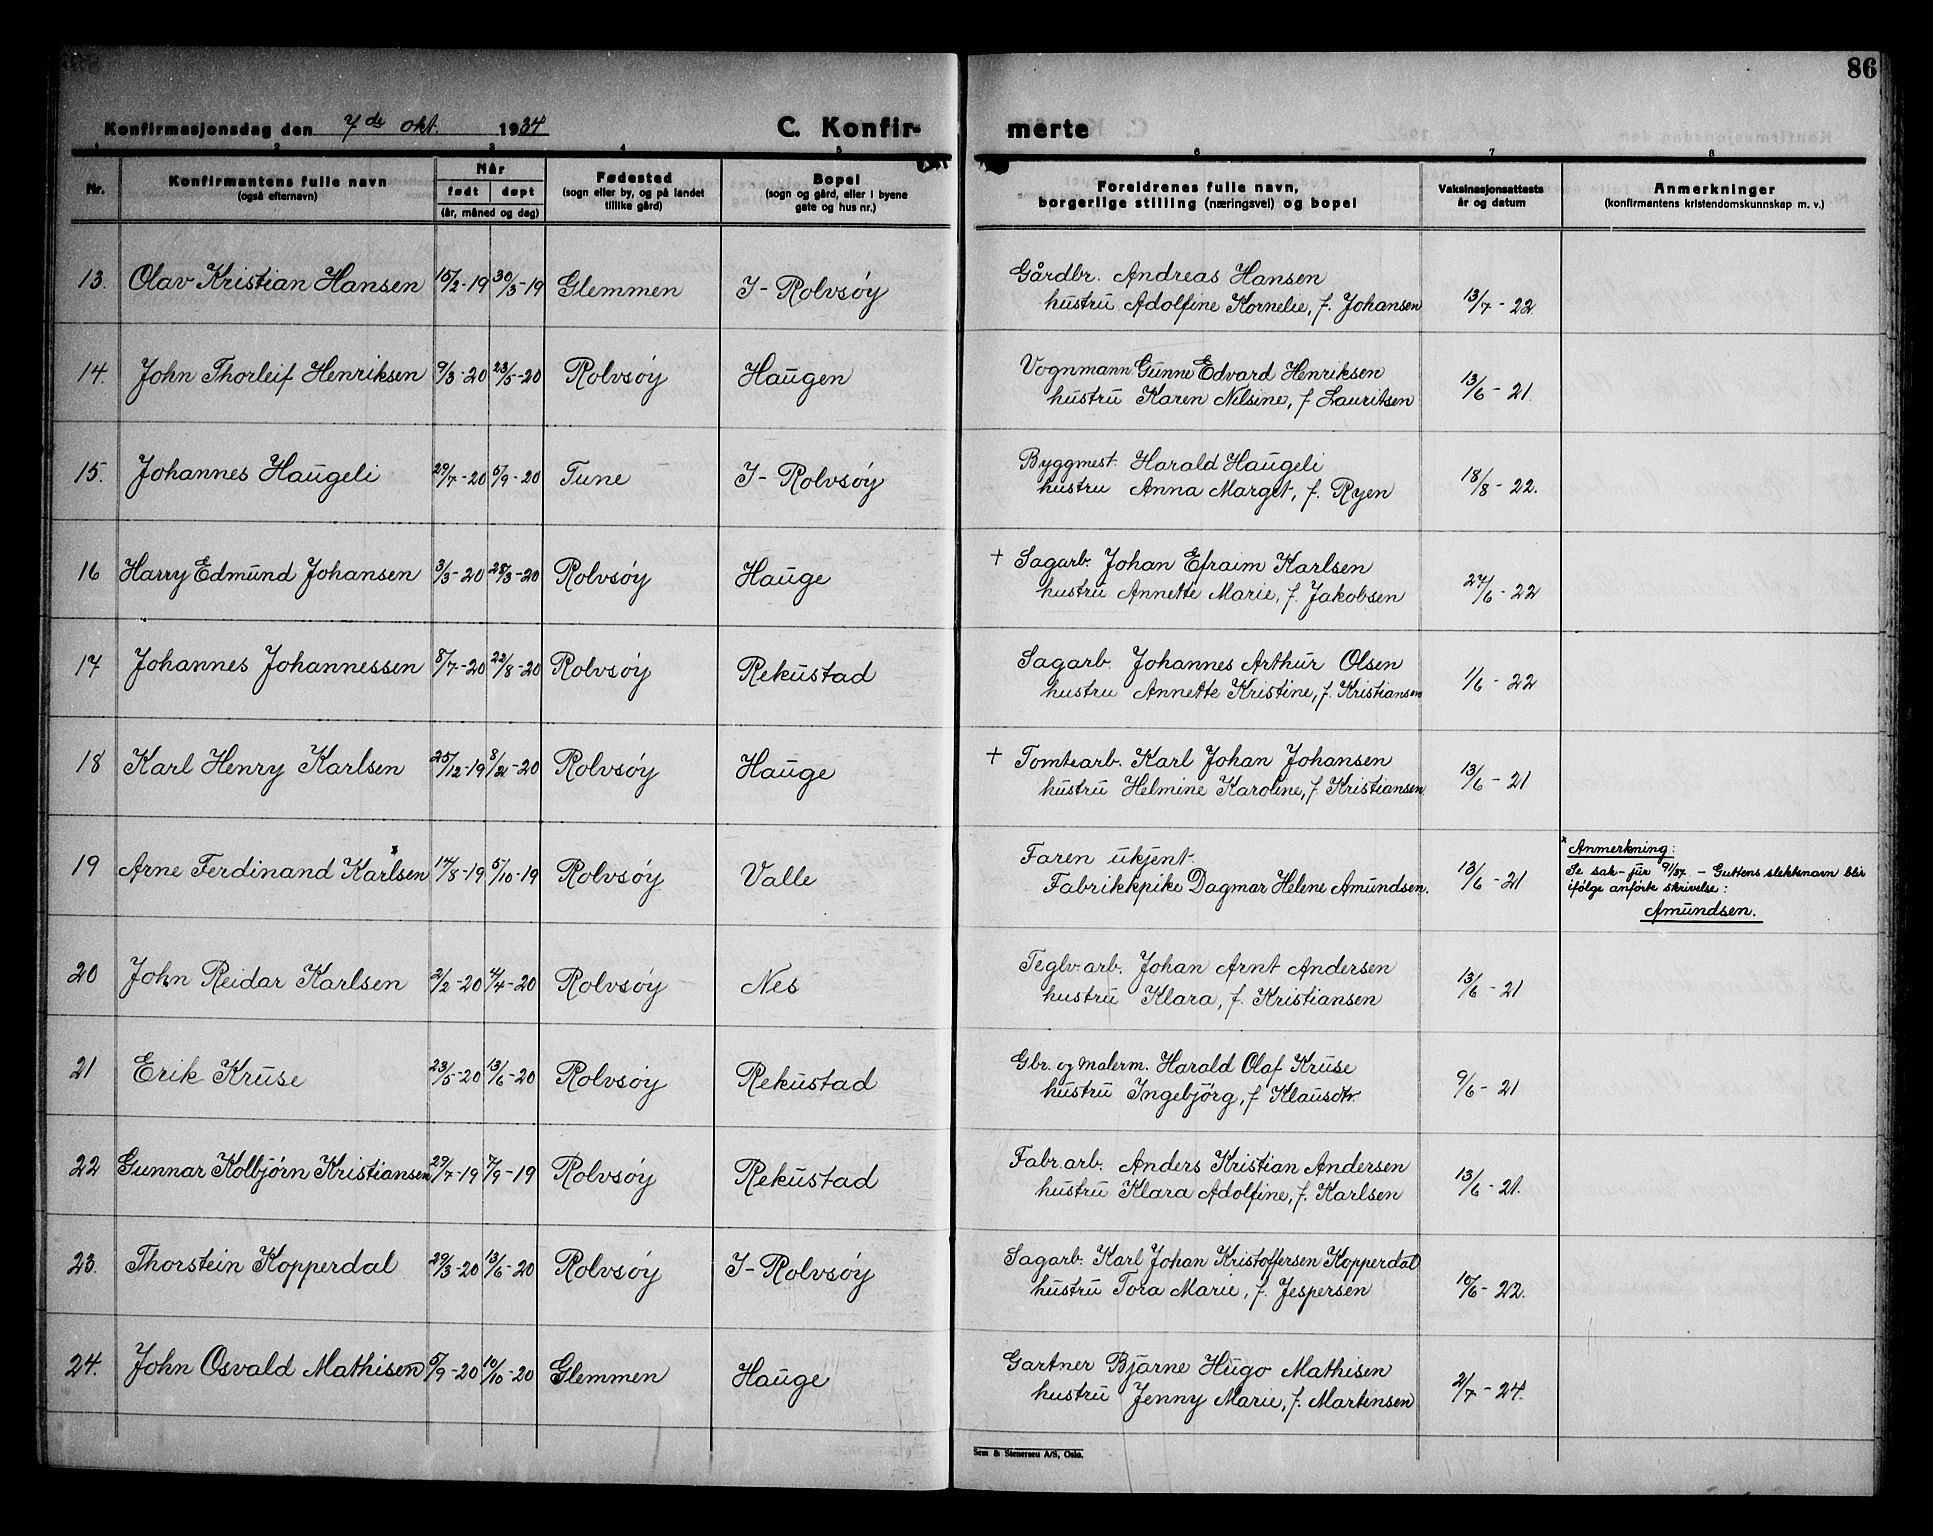 86
Konfirmasjonsdag den 7de okt. 1934
C. Konfir- merte
1 2 3 4 5 6 7 8
Nr.
Konfirmantens fulle navn
(også efternavn)
Når
født døpt
(år, måned og dag)
Fødested
(sogn eller by, og på landet
tillike gård)
Bopel
(sogn og gård, eller i byene
gate og hus nr.)
Foreldrenes fulle navn,
borgerlige stilling (næringsvei) og bopel
Vaksinasjonsattests
år og datum
Anmerkninger
(konfirmantens kristendomskunnskap m. v.)
13. Olav Kristian Hansen 15/2-19 30/3-19 Glemmen I-Rolvsöy Gårdbr. Andreas Hansen
hustru Adolfine Kornelie, f. Johansen 13/7-22
14. John Thorleif Henriksen 9/3-20 23/5-20 Rolvsöy Haugen Vognmann Gunne Edvard Henriksen
hustru Karen Nilsine, f Lauritsen 13/6-21.
15. Johannes Haugeli 29/7-20 5/9-20 Tune I-Rolvsöy Byggmest. Harald Haugeli
hustru Anna Marget, f. Ryen 18/8-22.
16 Harry Edmund Johansen 3/3-20 28/3-20 Rolvsöy Hauge + Sagarb. Johan Efraim Karlsen
hustru Annette Marie, f. Jakobsen 27/6-22
17 Johannes Johannessen 8/7-20 22/8-20 Rolvsöy Rekustad Sagarb. Johannes Arthur Olsen
hustru Annette Kristine, f. Kristiansen 1/6-22
18 Karl Henry Karlsen 25/12-19 8/2-20 Rolvsöy Hauge + Tomtearb. Karl Johan Johansen
hustru Helmine Karoline, f. Kristiansen 13/6-21
19 Arne Ferdinand Karlsen x 14/8-19 5/10-19 Rolvsöy Valle Faren ukjent.
Fabrikkpike Dagmar Helene Amundsen. 13/6-21
x Anmerkning:
Se sak-jur 9/37. - Guttens slektsnavn blir
ifölge anförte skrivelse:
Amundsen.
20 John Reidar Karlsen 2/2-20 4/4-20 Rolvsöy Nes Teglv.arb. Johan Arnt Andersen
hustru Klara, f. Kristiansen 13/6-21
21 Erik Kruse 23/5-20 13/6-20 Rolvsöy Rekustad Gbr. og malerm. Harald Olaf Kruse
hustru Ingebjörg, f Klausdtr. 9/6-21
22 Gunnar Kolbjörn Kristiansen 29/7-19 7/9-19 Rolvsöy Rekustad Fabr.arb. Anders Kristian Andersen
hustru Klara Adolfine, f. Karlsen 13/6-21.
23. Thorstein Kopperdal 29/3-20 13/6-20 Rolvsöy I-Rolvsöy Sagarb. Karl Johan Kristoffersen Kopperdal
hustru Tora Marie, f. Jespersen 10/6-22.
24. John Osvald Mathisen 5/9-20 10/10-20 Glemmen Hauge Gartner Bjarne Hugo Mathisen
hustru Jenny Marie, f. Martinsen 2/7-24.
Sem & Stenersen A/S, Oslo.